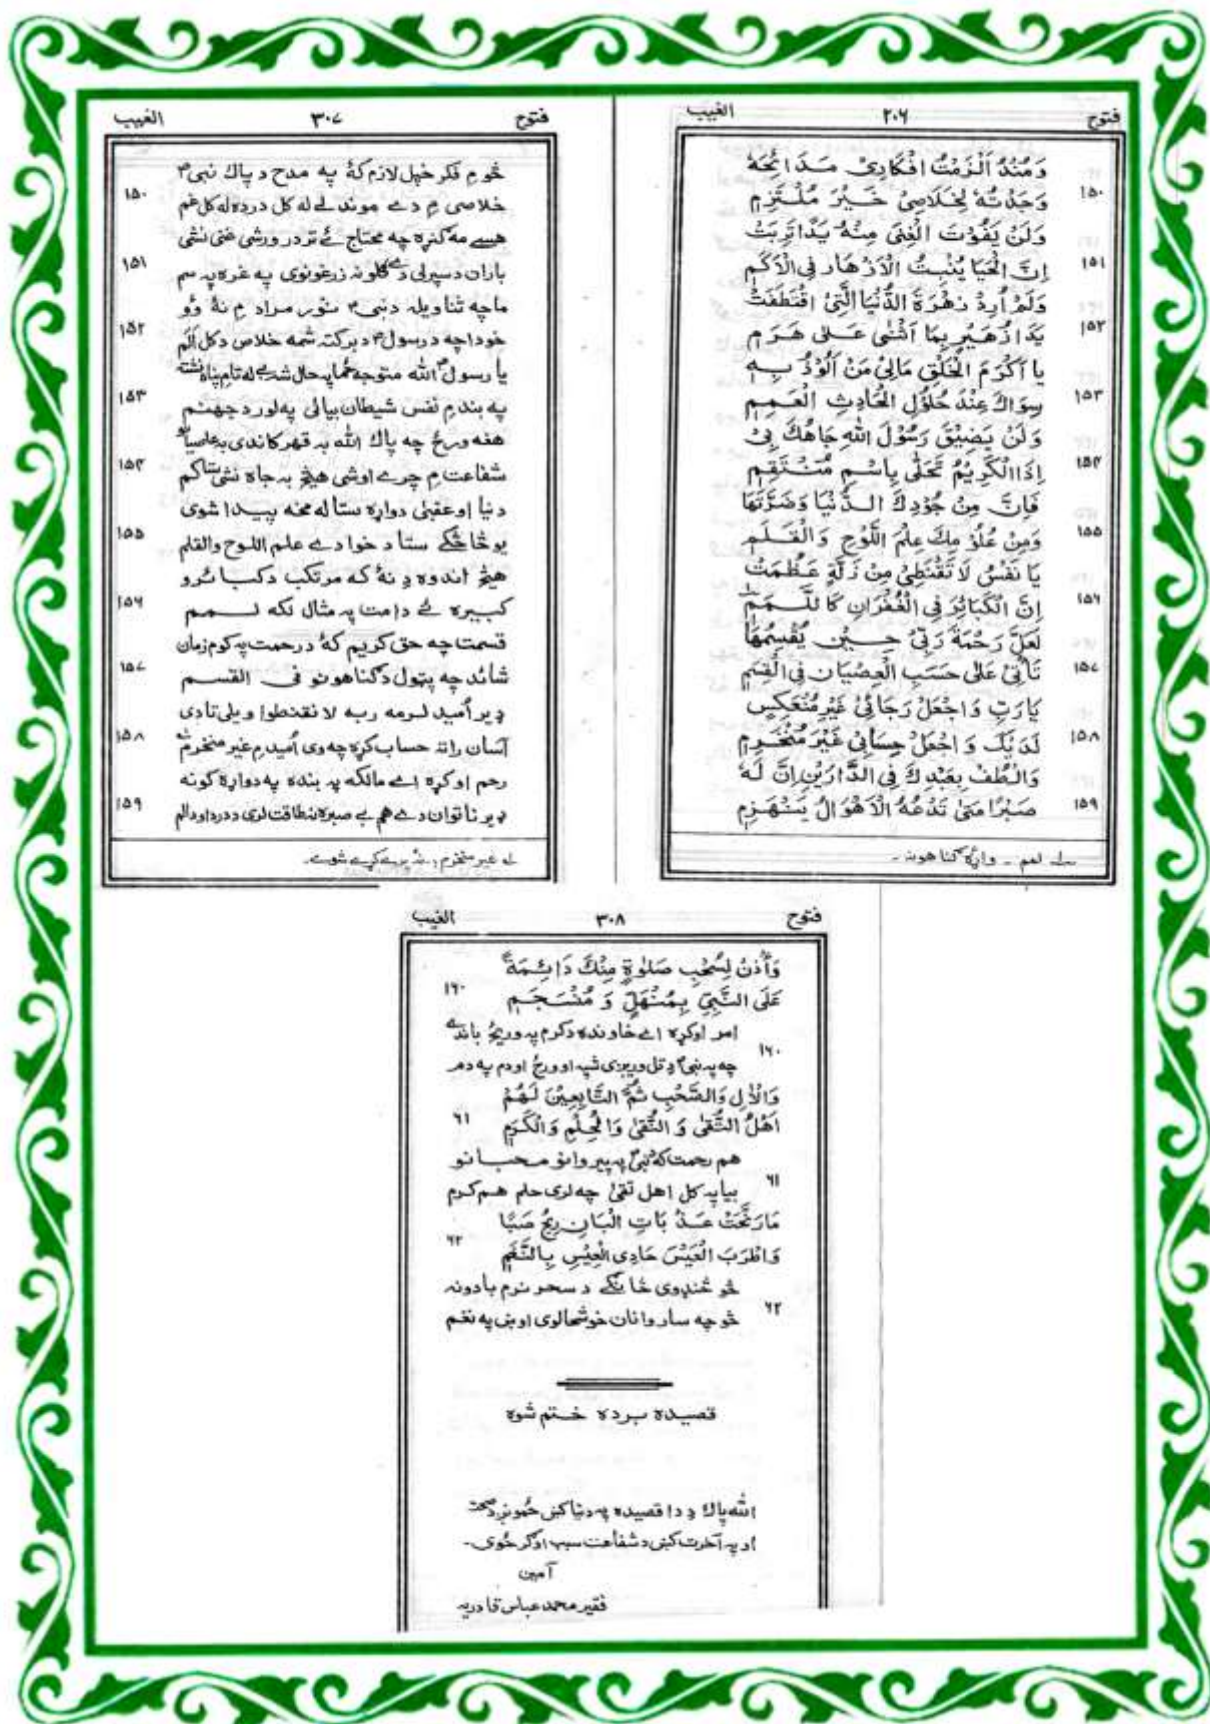 فتوح ۲۰۶ الغيب
وَمُنْذُ اَلْزَمْتُ اَفْكَارِىْ مَدَائِحَهٗ
وَجَدْتُهٗ لِخَلَاصِىْ خَيْرَ مُلْتَزِمٖ ۱۵۰
وَلَنْ يَفُوْتَ الْغِنٰى مِنْهُ يَدًا تَرِبَتْ
اِنَّ الْحَيَا يُنْبِتُ الْاَزْهَارَ فِى الْاَكَمٖ ۱۵۱
وَلَمْ اُرِدْ زَهْرَةَ الدُّنْيَا الَّتِىْ اقْتَطَفَتْ
يَدَا زُهَيْرٍ بِمَا اَثْنٰى عَلٰى هَرَمٖ ۱۵۲
يا اَكْرَمَ الْخَلْقِ مَالِىْ مَنْ اَلُوْذُ بِهٖ
سِوَاكَ عِنْدَ حُلُوْلِ الْحَادِثِ الْعَمِمٖ ۱۵۳
وَلَنْ يَضِيْقَ رَسُوْلَ اللهِ جَاهُكَ بِىْ
اِذَا الْكَرِيْمُ تَحَلّٰى بِاسْمِ مُنْتَقِمٖ ۱۵۴
فَاِنَّ مِنْ جُوْدِكَ الدُّنْيَا وَضَرَّتَهَا
وَمِنْ عُلُوْمِكَ عِلْمَ اللَّوْحِ وَالْقَلَمٖ ۱۵۵
يَا نَفْسُ لَا تَقْنَطِىْ مِنْ زَلَّةٍ عَظُمَتْ
اِنَّ الْكَبَائِرَ فِى الْغُفْرَانِ كَاللَّمَمٖ ۱۵۶
لَعَلَّ رَحْمَةَ رَبِّىْ حِيْنَ يَقْسِمُهَا
تَأْتِىْ عَلٰى حَسَبِ الْعِصْيَانِ فِى الْقِسَمٖ ۱۵۷
يَارَبِّ وَاجْعَلْ رَجَائِىْ غَيْرَ مُنْعَكِسٍ
لَدَيْكَ وَاجْعَلْ حِسَابِىْ غَيْرَ مُنْخَرِمٖ ۱۵۸
وَالْطُفْ بِعَبْدِكَ فِى الدَّارَيْنِ اِنَّ لَهٗ
صَبْرًا مَتٰى تَدْعُهُ الْاَهْوَالُ يَنْهَزِمٖ ۱۵۹
لمم ـ واړۀ ګناهونه ـ
فتوح ۳۰۷ الغيب
څو مِ فکر خپل لازم کۀ په مدح د پاك نبى
خلاصى مِ دے موندلے له کل درده له کل غم ۱۵۰
هسے مه ګنړه چه محتاج ئے تر در ورشى غنى نشى
باران د سپرلى دے ګلونه زرغونوى په غره په سم ۱۵۱
ما چه ثنا ويله د نبى نور مراد مِ نۀ وؤ
خودا چه د رسول د برکت شمه خلاص د کل اَلَم ۱۵۲
يا رسول الله متوجه په حال شه بے له تا مِ پناه نشته
په بند مِ نفس شيطان بيائى په لور د جهنم ۱۵۳
هغه ورځ چه پاك الله به قهر کاندى به عاصيا
شفاعت مِ چرے اوشى هيڅ به جاه نشى ستا کم ۱۵۴
دنيا او عقبى دواړه ستا له مخه پيدا شوى
يو څاڅکے ستا د خوا دے علم اللوح والقلم ۱۵۵
هيڅ اندوه دِ نۀ که مرتکب د کبائرو
کبيره ئے د رحمت په مثال لکه لمم ۱۵۶
قسمت چه حق کريم کۀ د رحمت په کوم زمان
شائد چه په تول د ګناهونو فى القسم ۱۵۷
ډير اُميد لرمه ربه لا تقنطوا ويلى تا دى
آسان راته حساب کړه چه وى اُميد مِ غير منخرم ۱۵۸
رحم اوکړه اے مالکه په بنده په دواړه کونه
ډير ناتوان دے هم بے صبره نه طاقت لرى د درد او د الم ۱۵۹
له غير منخرم ـ شوے ـ
فتوح ۳۰۸ الغيب
وَأْذَنْ لِسُحْبِ صَلٰوةٍ مِنْكَ دَائِمَةً
عَلَى النَّبِىِّ بِمُنْهَلٍّ وَ مُنْسَجَمٖ ۱۶۰
امر اوکړه اے خاونده د کرم په وريځ باندے
چه په نبى دِ تل وريږى شپه او ورځ او دم په دم ۱۶۰
وَالْاٰلِ وَالصَّحْبِ ثُمَّ التَّابِعِيْنَ لَهُمْ
اَهْلُ التُّقٰى وَ النُّقٰى وَالْحِلْمِ وَالْكَرَمٖ ۶۱
هم رحمت کۀ د نبى په پيروانو محبانو
بيا په کل اهل تقىٰ چه لرى حلم هم کرم ۶۱
مَارَنَّحَتْ عَذَبَاتِ الْبَانِ رِيْحُ صَبًا
وَاَطْرَبَ الْعِيْسَ حَادِى الْعِيْسِ بِالنَّغَمٖ ۶۲
څو څنډوى څانګے د سحر نرم بادونه
څو چه ساروانان خوشحالوى اوښى په نغم ۶۲
قصيده برده ختم شوه
الله پاك دِ دا قصيده په دنيا کښ ځمونږ د صحت
او په آخرت کښ د شفاعت سبب اوګرځوى ـ
آمين
فقير محمد عباس قادريه